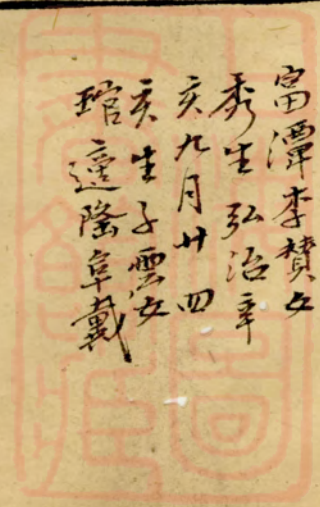 富潭李贊女
秀生弘治辛
亥九月廿四
亥生子雲女
琯適隆阜戴